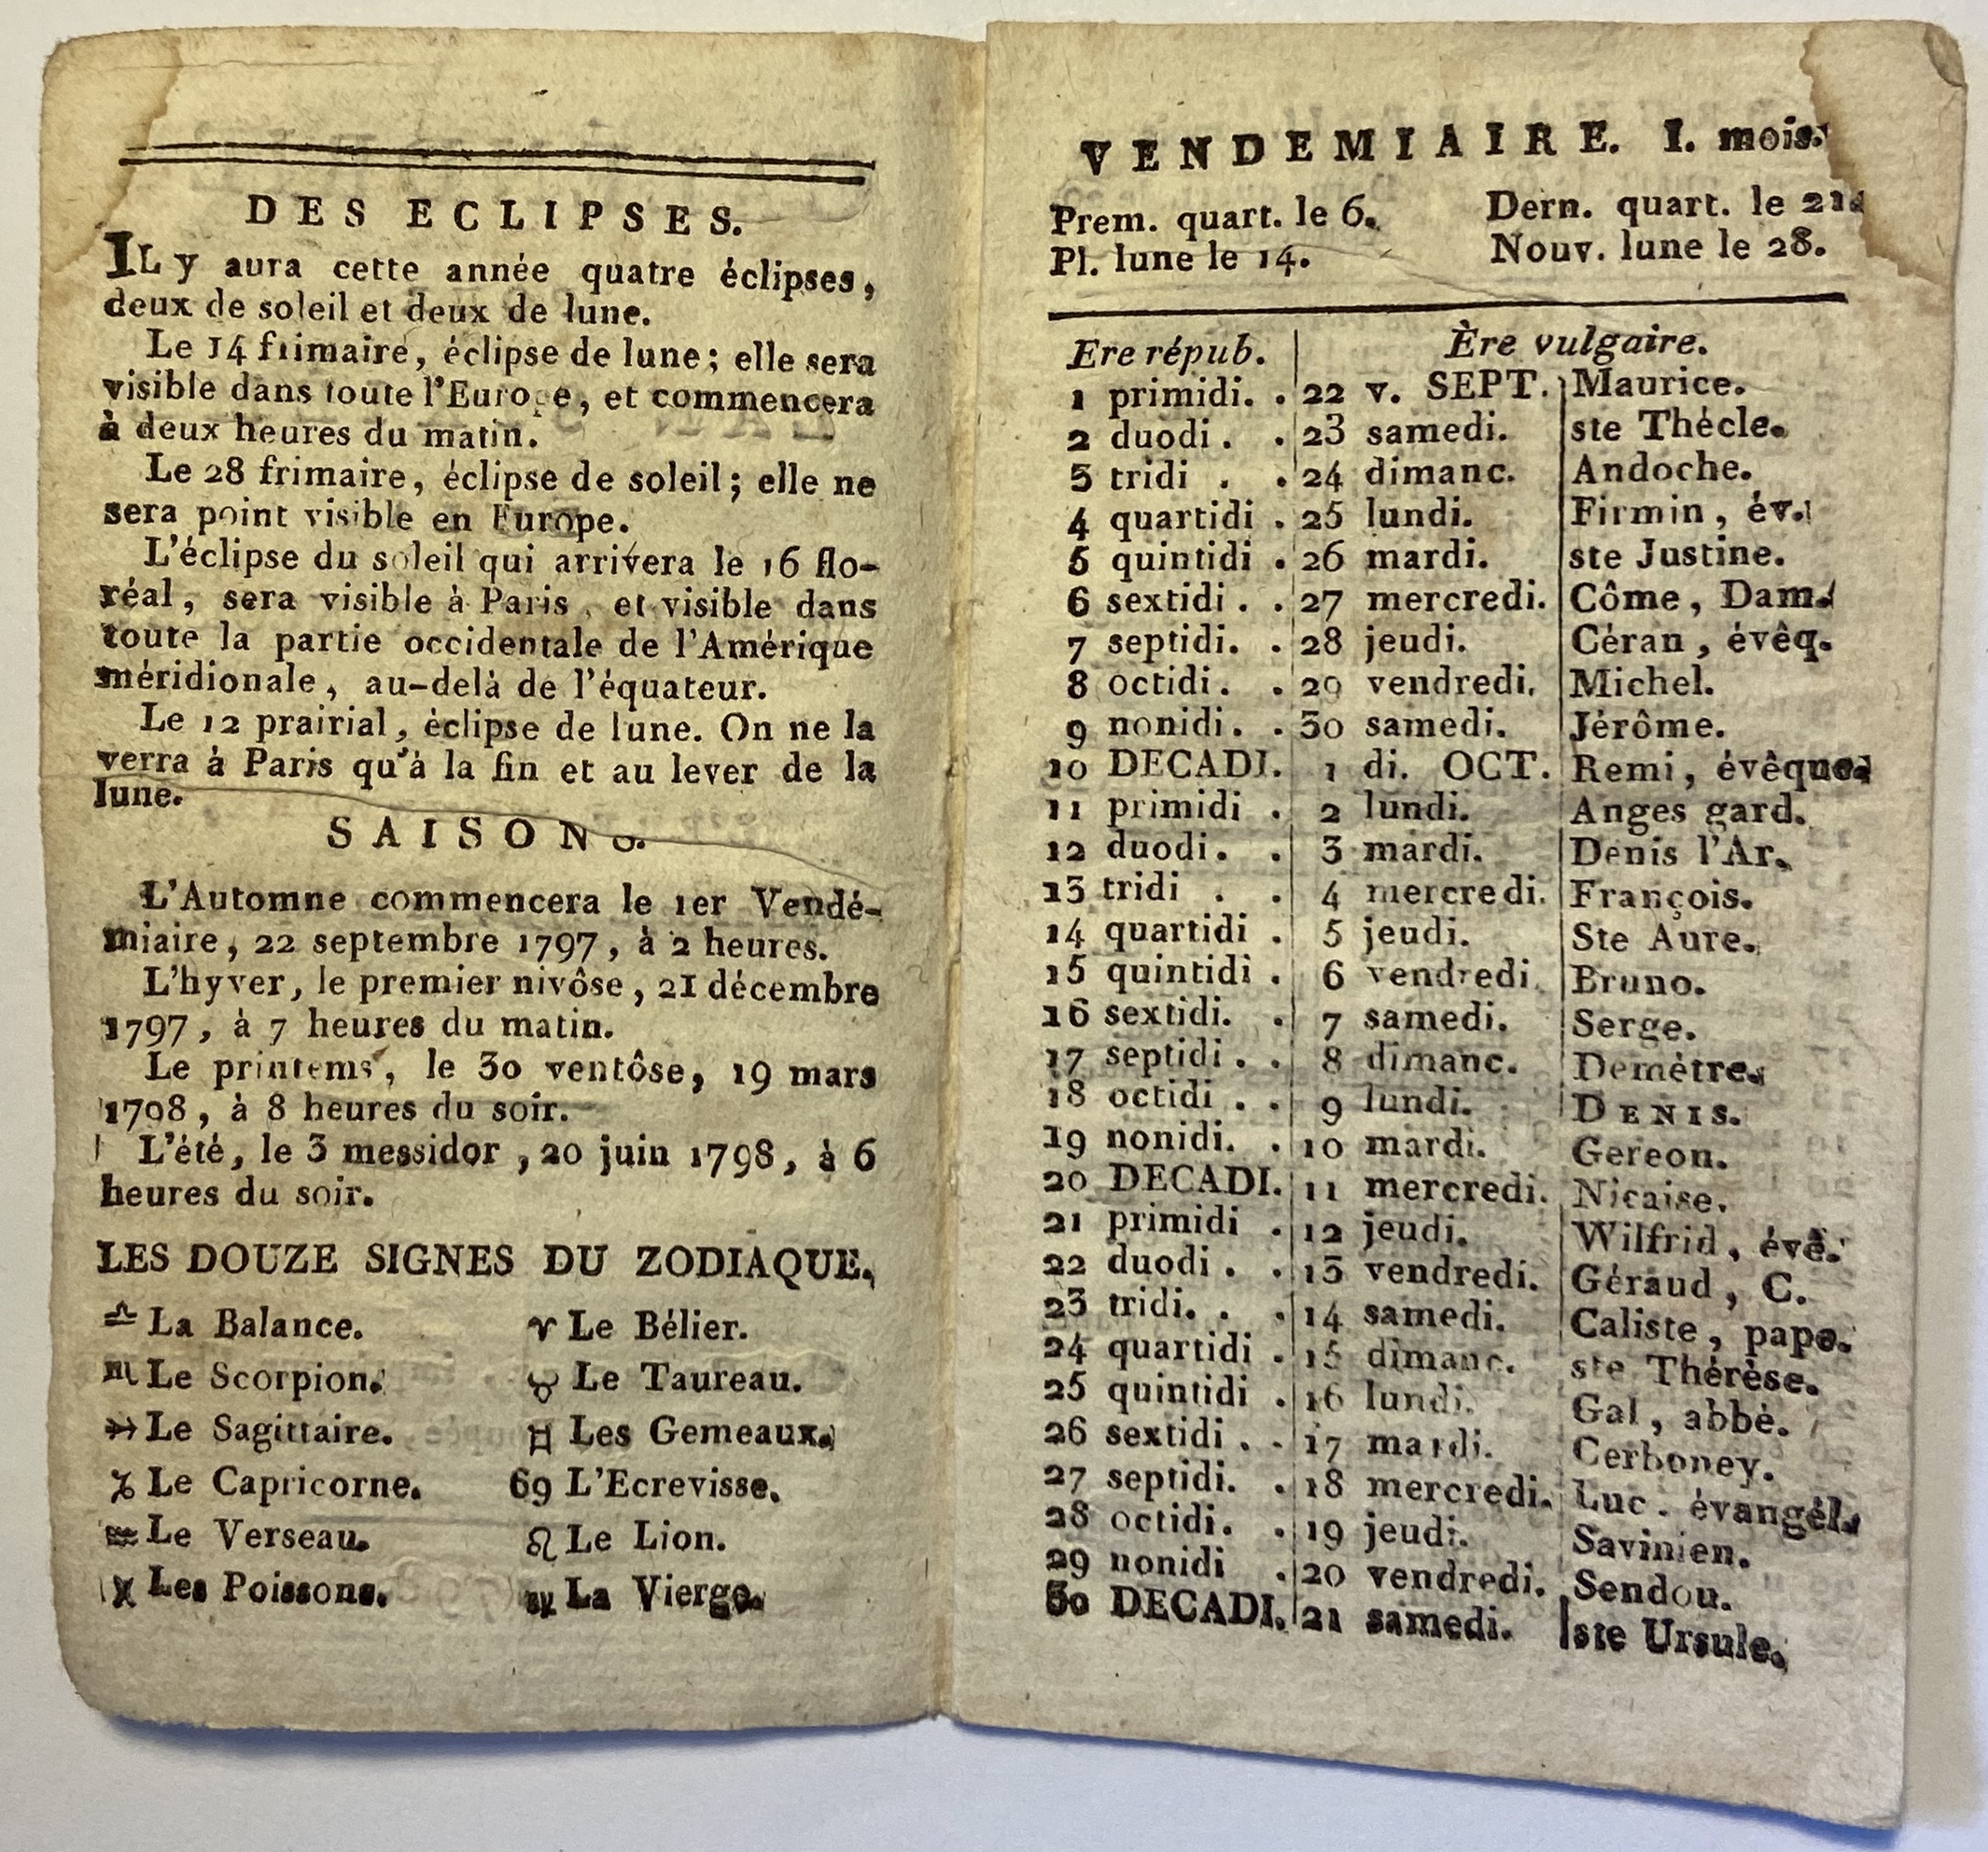 DES ECLIPSES.
IL y aura cette année quatre éclipses,
deux de soleil et deux de lune.
Le 14 frimaire, éclipse de lune; elle sera
visible dans toute l'Europe, et commencera
à deux heures du matin.
Le 28 frimaire, éclipse de soleil; elle ne
sera point visible en Europe.
L'éclipse du soleil qui arrivera le 16 flo-
réal, sera visible à Paris, et visible dans
toute la partie occidentale de l'Amérique
méridionale, au-delà de l'équateur.
Le 12 prairial, éclipse de lune. On ne la
verra à Paris qu'à la fin et au lever de la
lune.
SAISONS.
L'Automne commencera le 1er Vendé-
miaire, 22 septembre 1797, à 2 heures.
L'hyver, le premier nivôse, 21 décembre
1797, à 7 heures du matin.
Le printems, le 30 ventôse, 19 mars
1798, à 8 heures du soir.
L'été, le 3 messidor, 20 juin 1798, à 6
heures du soir.
LES DOUZE SIGNES DU ZODIAQUE.
♎ La Balance. ♈ Le Bélier.
♏ Le Scorpion. ♉ Le Taureau.
♐ Le Sagittaire. ♊ Les Gemeaux.
♑ Le Capricorne. 69 L'Ecrevisse.
♒ Le Verseau. ♌ Le Lion.
♓ Les Poissons. ♍ La Vierge.
VENDEMIAIRE. I. mois.
Prem. quart. le 6. Dern. quart. le 21.
Pl. lune le 14. Nouv. lune le 28.
Ere répub. Ère vulgaire.
1 primidi. . 22 v. SEPT. Maurice.
2 duodi. . 23 samedi. ste Thécle.
3 tridi . . 24 dimanc. Andoche.
4 quartidi . 25 lundi. Firmin, év.
5 quintidi . 26 mardi. ste Justine.
6 sextidi . . 27 mercredi. Côme, Dam.
7 septidi. . 28 jeudi. Céran, évêq.
8 octidi. . 29 vendredi. Michel.
9 nonidi. . 30 samedi. Jérôme.
10 DECADI. 1 di. OCT. Remi, évêque.
11 primidi . 2 lundi. Anges gard.
12 duodi. . 3 mardi. Denis l'Ar.
13 tridi . . 4 mercredi. François.
14 quartidi . 5 jeudi. Ste Aure.
15 quintidi . 6 vendredi. Bruno.
16 sextidi. . 7 samedi. Serge.
17 septidi . . 8 dimanc. Demètre.
18 octidi . . 9 lundi. DENIS.
19 nonidi. . 10 mardi. Gereon.
20 DECADI. 11 mercredi. Nicaise.
21 primidi . 12 jeudi. Wilfrid, évê.
22 duodi . . 13 vendredi. Géraud, C.
23 tridi. . . 14 samedi. Caliste, pape.
24 quartidi . 15 dimanc. ste Thérèse.
25 quintidi . 16 lundi. Gal, abbé.
26 sextidi . . 17 mardi. Cerboney.
27 septidi. . 18 mercredi. Luc. évangél.
28 octidi. . 19 jeudi. Savinien.
29 nonidi . 20 vendredi. Sendou.
30 DECADI. 21 samedi. ste Ursule.